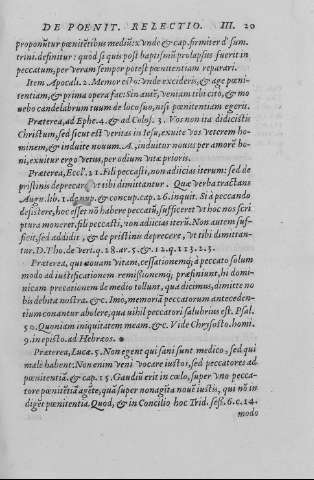 DE POENIT. RELECTIO. III. 20
proponũtur pœnitẽtibus mediũ: vnde & cap. firmiter d' sum.
trini. definitur: quod si quis post baptismũ prolapsus fuerit in
peccatum, per veram semper potest pœnitentiam reparari.
Item Apocali. 2. Memor esto vnde excideris, & age pœni-
tentiam, & prima opera fac: Sin autẽ, veniam tibi citò, & mo
uebo candelabrum tuum de loco suo, nisi pœnitentiam egeris.
Præterea, ad Ephe. 4. & ad Colos. 3. Vos non ita didicistis
Christum, sed sicut est veritas in Iesu, exuite vos veterem ho-
minem, & induite nouum. A. induitur nouus per amorẽ bo-
ni, exuitur ergo vetus, per odium vitæ prioris.
Præterea, Eccl'. 21. Fili peccasti, non adiicias iterum: sed de
pristinis deprecare, vt tibi dimittantur. Quæ verba tractans
Aug'. lib. 1. d' nup. & concup. cap. 26. inquit. Si à peccando
desistere, hoc esset nõ habere peccatũ, sufficeret vt hoc nos scri
ptura moneret, fili peccasti, non adiicias iterũ. Non autem suf-
ficit, sed addidit, & de pristinis deprecere, vt tibi dimittan-
tur. D. Tho. de veri. q. 28. ar. 5. & .12. q. 113. 2. 3.
Præterea, qui nouam vitam, cessationemq́; à peccato solum
modo ad iustificationem remissionemq́; præfiniunt, hi domi-
nicam precationem de medio tollunt, qua dicimus, dimitte no
bis debita nostra. &c. Imo, memoriã peccatorum anteceden-
tium conantur abolere, qua nihil peccatori salubrius est. Psal.
50. Quoniam iniquitatem meam. &c. Vide Chrysosto. homi.
9. in episto. ad Hebræos.
Præterea, Lucæ. 5. Non egent qui sani sunt medico, sed qui
male habent: Non enim veni vocare iustos, sed peccatores ad
pœnitentiã, & cap. 15. Gaudiũ erit in cœlo, super vno pecca-
tore pœnitẽtiã agẽte, quã super nonagĩta nouẽ iustis, qui nõ in
digẽt pœnitentia. Quod, & in Concilio hoc Trid. sess. 6. c. 14.
modo